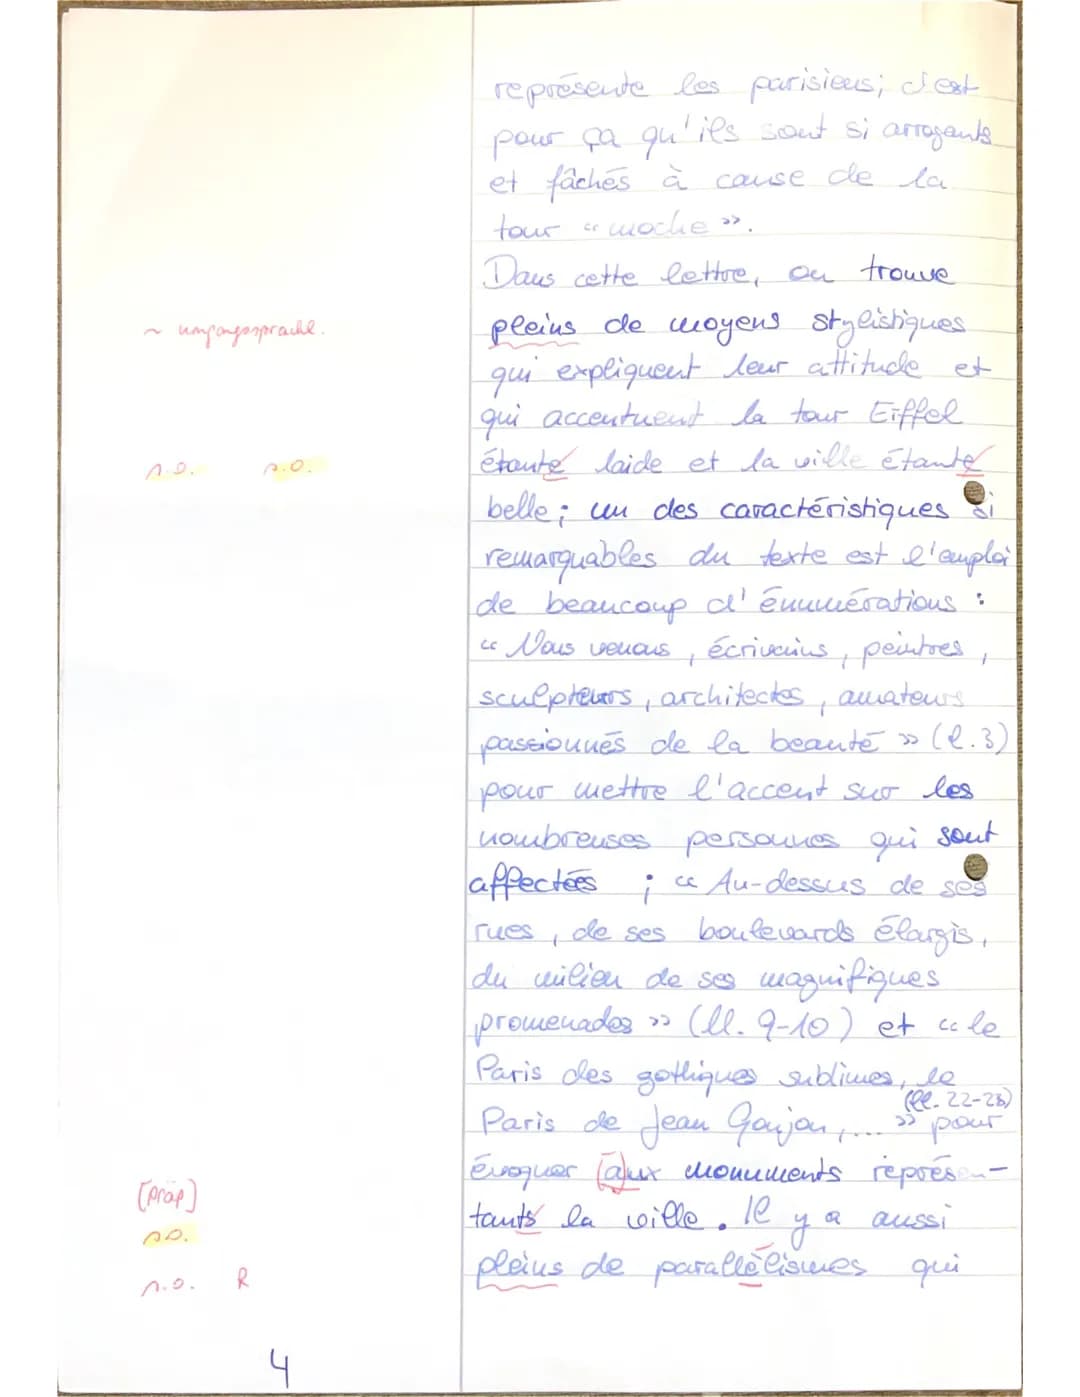 représente les parisiens; c'est
pour ça qu'ils sont si arrogants
et fâchés à cause de la
tour « moche ».
Dans cette lettre, on trouve
~ umgangssprachl.
pleins de moyens stylistiques
qui expliquent leur attitude et
qui accentuent la tour Eiffel
étante laide et la ville étante
belle; un des caractéristiques si
remarquables du texte est l'emploi
de beaucoup d'énumérations :
« Nous venons, écrivains, peintres,
sculpteurs, architectes, amateurs
passionnés de la beauté » (l.3)
pour mettre l'accent sur les
nombreuses personnes qui sont
affectées ; « Au-dessus de ses
rues, de ses boulevards élargis,
du milieu de ses magnifiques
promenades » (ll. 9-10) et « le
Paris des gothiques sublimes, le
(ll. 22-28)
Paris de Jean Goujon,... » pour
évoquer (aux monuments représen-
[präp]
tants la ville. Il y a aussi
pleins de parallèlismes qui
R
4